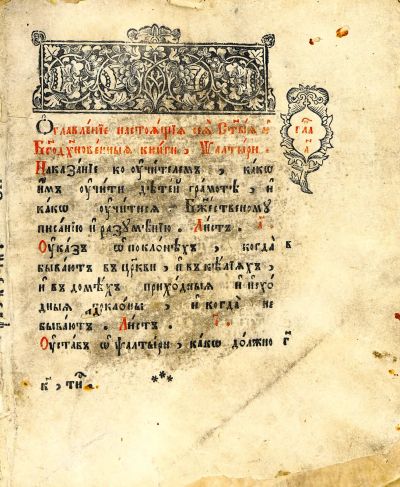 Ѻглавленїе настоѧщїѧ сеѧ̀ ст҃ы́ѧ и҆
Бг҃одꙋхнове́нныѧ кни́ги, Ѱалты́ри.
Наказа́нїе ко ᲂу҆чи́телемъ, ка́кѡ
и҆̀мъ ᲂу҆чи́ти дѣте́й гра́мотѣ, и҆
ка́кѡ ᲂу҆чи́тисѧ Бж҃е́ственомꙋ
писа́нїю и҆ разꙋмѣ́нїю. Ли́стъ. а҃
Оу҆ка́зъ ѡ҆ покло́нѣхъ, когда̀ в
быва́ютъ въ цр҃кви, и҆ въ ке́лїѧхъ,
и҆ въ домѣ́хъ прихо́дныѧ и҆ и҆схо́
дныѧ покло́ны, и҆ когда̀ не
быва́ютъ. Ли́стъ.
Оу҆ста́въ ѡ҆ ѱалты́ри, ка́кѡ до́лжно